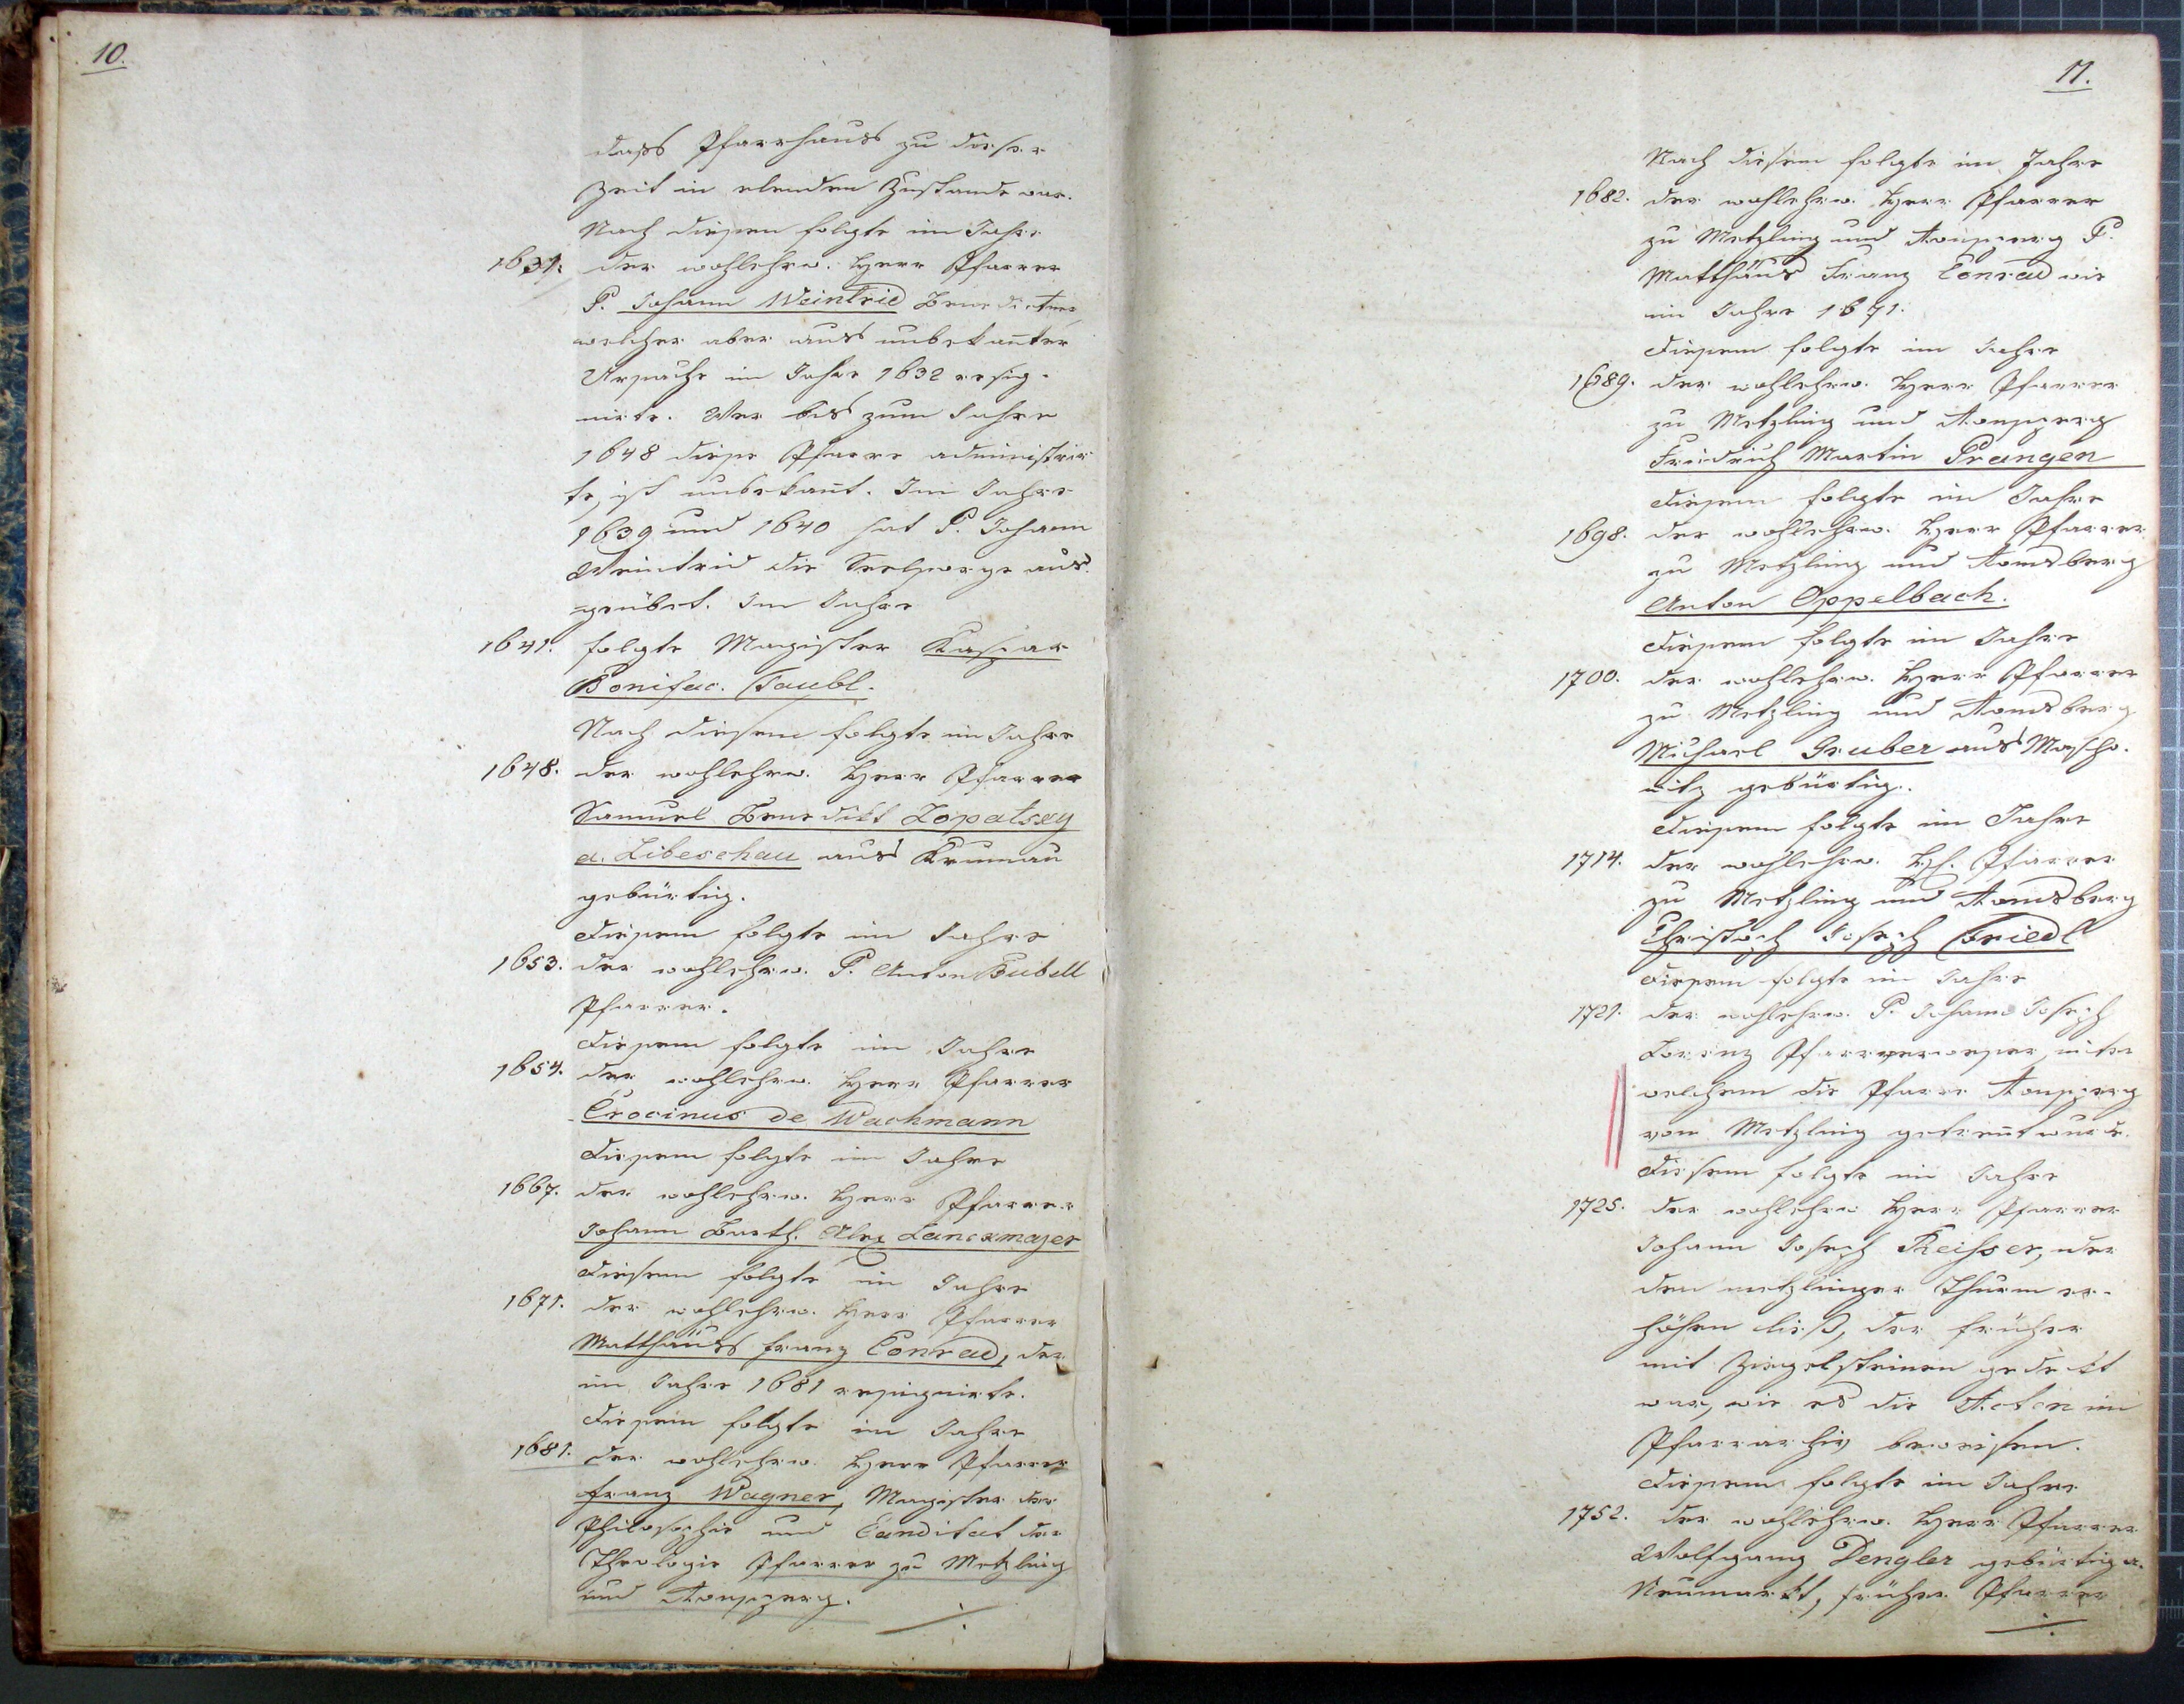 10.
dass Pfarrhaus zu dieser
Zeit in elenden Zustande war.
Nach diesen folgte im Jahre
1631. der wohlehrw. Herr Pfarrer
P. Johann Weintrid Benedictner,
welcher aber aus unbekañter
Ursache im Jahre 1632 resig-
nirte. Wer bis zum Jahre
1648 diese Pfarre administrir
te, ist unbekañt. Im Jahre
1639 und 1640 hat P. Johann
Weintrid die Seelsorge aus
geübet. Im Jahre
1641. folgte Magister Kaspar
Bonifac. Taubl.
Nach diesem folgte im Jahre
1648. der wohlehrw. Herr Pfarrer
Samuel Benedikt Lopatsky
a. Libeschau aus Krumau
gebürtig.
Diesem folgte im Jahre
1653. der wohlehrw. P. Anton Bubell
Pfarrer.
Diesem folgte im Jahre
1654. der wohlehrw. Herr Pfarrer
Crocinus de Wachmann
Diesem folgte im Jahre
1667. der wohlehrw. Herr Pfarrer
Johann Barth. Alex Lancxmajer
Diesem folgte im Jahre
1671. der wohlehrw. Herr Pfarrer
Matthäus Franz Conrad, der
im Jahre 1681 resignirte.
Diesem folgte im Jahre
1681. der wohlehrw. Herr Pfarrer
Franz Wagner, Magister der
Philosophie und Canditat der
Theologie Pfarrer zu Metzling
und Ronsperg.
./.
11.
Nach diesem folgte im Jahre
1682. der wohlehrw. Herr Pfarrer
zu Metzling und Ronsperg P.
Matthäus Franz Conrad wie
im Jahre 1671.
Diesem folgte im Jahre
1689. der wohlehrw. Herr Pfarrer
zu Metzling und Ronsperg
Friedrich Martin Prangen
Diesem folgte im Jahre
1698. der wohlehrw. Herr Pfarrer
zu Metzling und Ronsberg
Anton Oppelbach.
Diesem folgte im Jahre
1700. der wohlehrw. Herr Pfarrer
zu Metzling und Ronsberg
Michael Gruber aus Mascho-
nitz gebürtig.
Diesem folgte im Jahre
1714. der wohlehrw. H. Pfarrer
zu Metzling und Ronsberg
Christoph Joseph Friedl
Diesem folgte im Jahre
1721. der wohlehrw. P. Johann Joseph
Lorenz Pfarrverweser, unter
welchem die Pfarre Ronsperg
von Metzling getreñt wurde.
Diesem folgte im Jahre
1725. der wohlehrw. Herr Pfarrer
Johann Joseph Reisser, der
den metzlinger Thurm er-
höhen ließ, der früher
mit Ziegelsteinen gedekt
war, wie es die Acten im
Pfarrarchiv beweisen.
Diesem folgte im Jahre
1752. der wohlehrw. Herr Pfarrer
Wolfgang Dengler gebürtig a.
Neumarkt, früher Pfarrer
./.